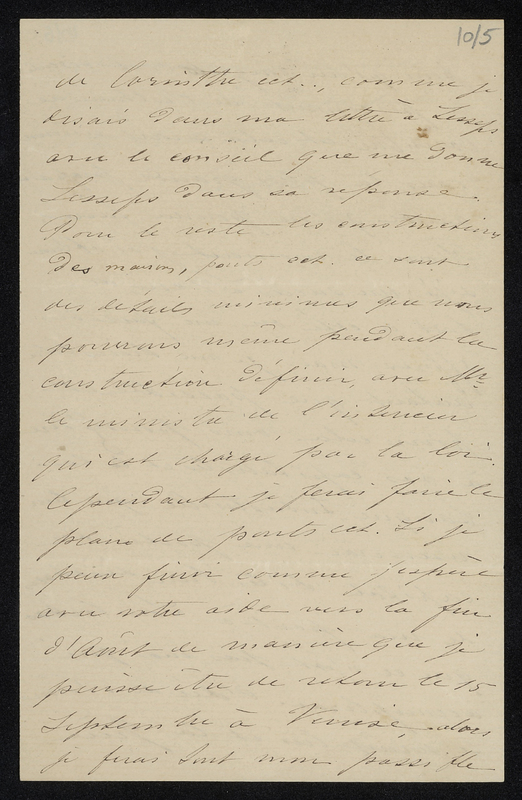 10/5
de Corinthe ect.., comme je
disais dans ma lettre à Lesseps
avec le conseil que me donne
Lesseps dans sa réponse.
Pour le reste les constructions
des maisons, ponts ect. ce sont
des détails minimes que nous
pourrons même pendant la
construction définir, avec Mr
le ministre de l'interieur
qui est chargé par la loi.
Cependant je ferai faire le
plans de ponts ect. Si je
peux finir comme j'espère
avec votre aide vers la fin
d'Août de manière que je
puisse être de retour le 15
Septembre à Venise, alors
je ferai tout mon possible